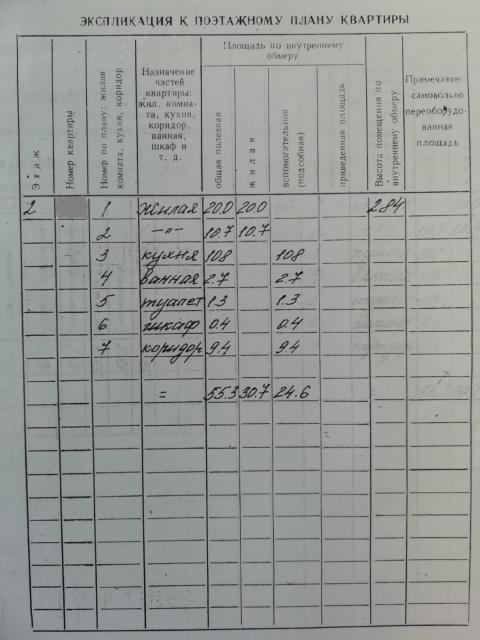 ЭКСПЛИКАЦИЯ К ПОЭТАЖНОМУ ПЛАНУ КВАРТИРЫ
Этаж
Номер квартиры
Номер по плану: жилая
комната, кухня, коридор
Назначение
частей
квартиры:
жил. комна-
та, кухня,
коридор,
ванная,
шкаф и
т. д.
Площадь по внутреннему
обмеру
общая полезная
жилая
вспомогательння
(подсобная)
приведенная площадь
Высота помещения по
внутреннему обмеру
Примечание:
самовольно
переоборудо-
ванная
площадь
2 1 жилая 20.0 20.0 2.84
2 —"— 10.7 10.7
3 кухня 10.8 10.8
4 ванная 2.7 2.7
5 туалет 1.3 1.3
6 шкаф 0.4 0.4
7 коридор 9.4 9.4
= 55.3 30.7 24.6